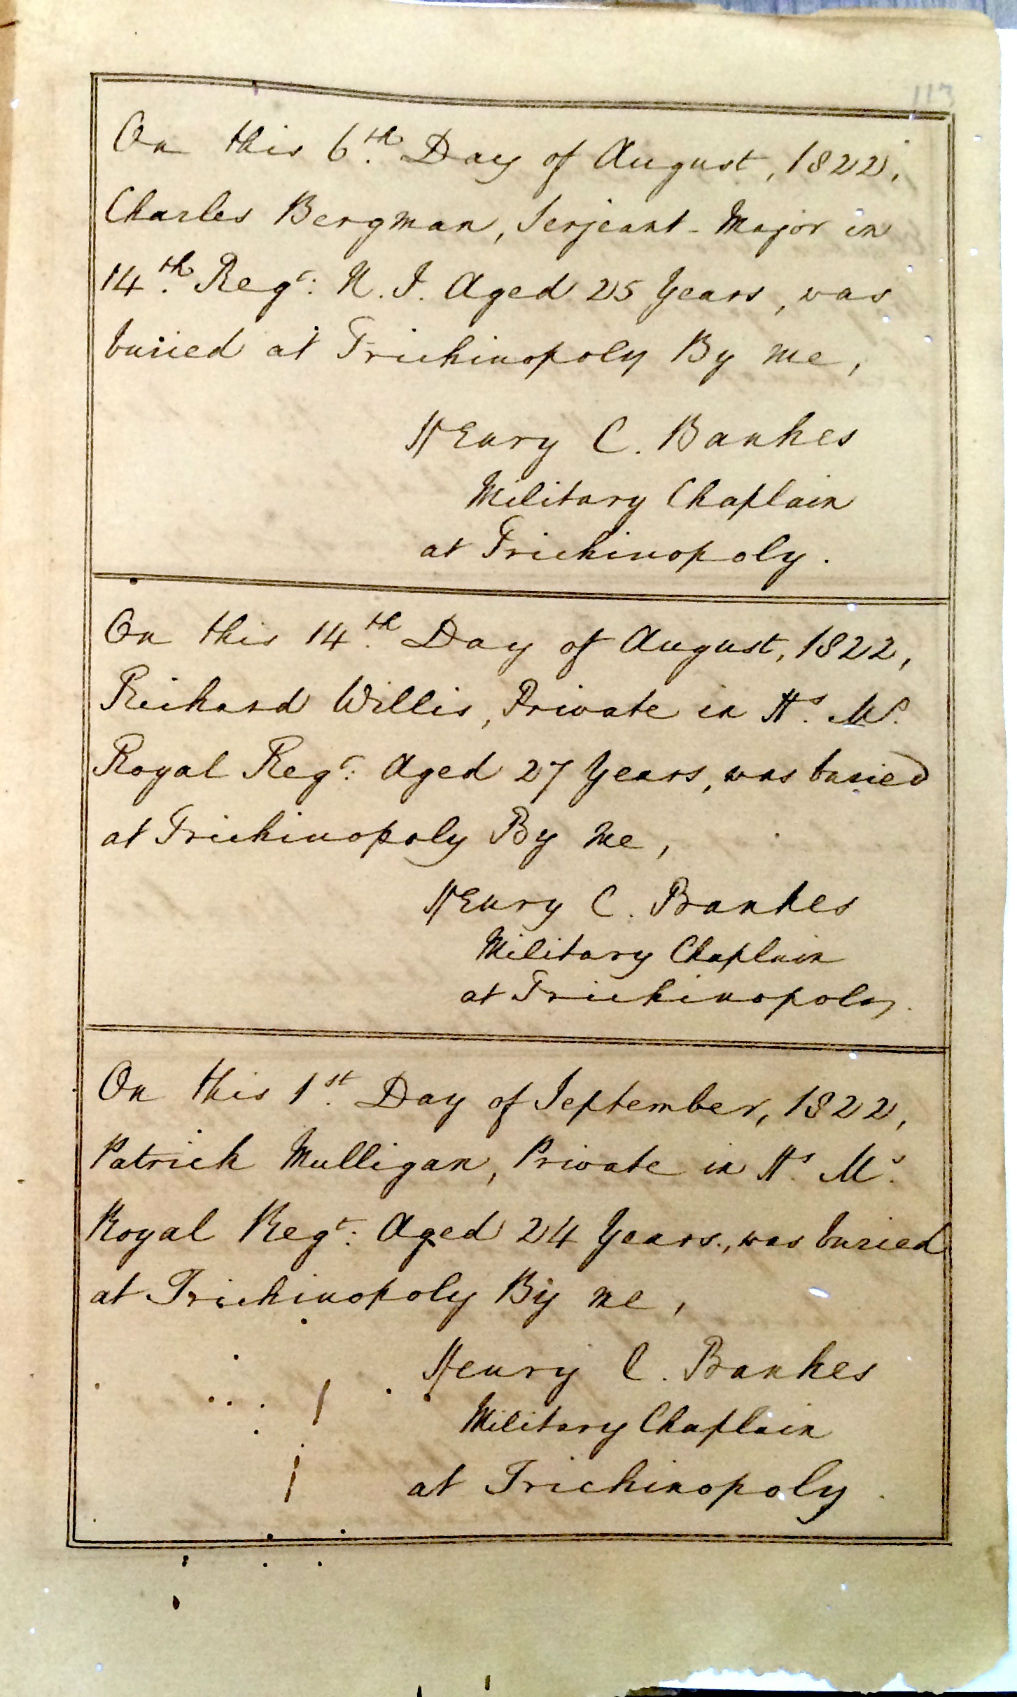 113
On this 6th. Day of August, 1822,
Charles Bergman, Serjeant-Major in
14th. Regt: N. I. Aged 25 Years, was
buried at Trichinopoly By me,
Henry C. Bankes
Military Chaplain
at Trichinopoly.
On this 14th. Day of August, 1822,
Richard Willis, Private in Hs. Ms.
Royal Regt: Aged 27 Years, was buried
at Trichinopoly By me,
Henry C. Bankes
Military Chaplain
at Trichinopoly.
On this 1st. Day of September, 1822,
Patrick Mulligan, Private in Hs. Ms.
Royal Regt: Aged 24 Years., was buried
at Trichinopoly By me,
Henry C. Bankes
Military Chaplain
at Trichinopoly.